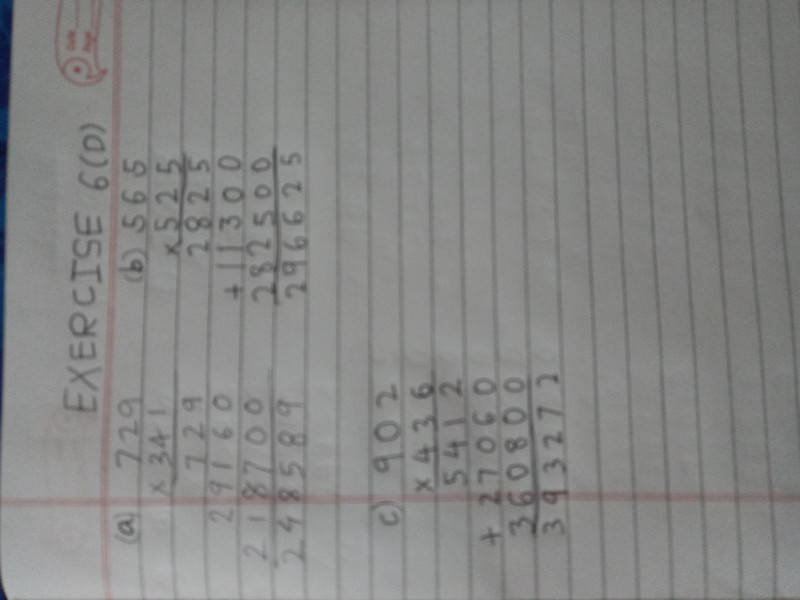 Date
Page
EXERCISE 6(D)
(a) 729
x 341
729
29160
218700
248589
(b) 565
x 525
2825
+ 11300
282500
296625
c) 902
x 436
5412
+ 27060
360800
393272